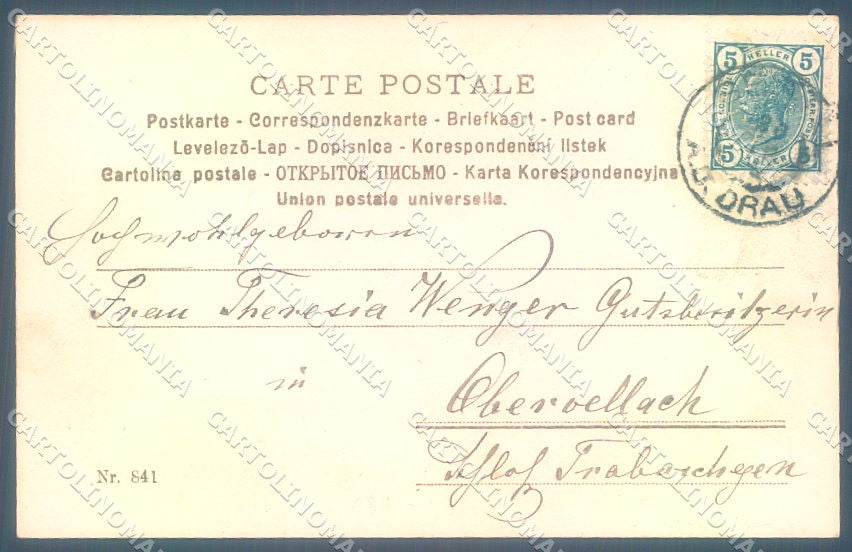 CARTE POSTALE
Postkarte - Correspondenzkarte - Briefkaart - Post card
Levelezõ-Lap - Dopisnica - Korespondenčni listek
Cartolina postale - ОТКРЫТОЕ ПИСЬМО - Karta Korespondencyjna
Union postale universelle.
5 HELLER 5
5 HELLER 5
A.D. DRAU
Hochwohlgeboren
Frau Theresia Wenger Gutsbesitzerin
in
Obervellach
Schloß Trabuschgen
Nr. 841
CARTOLINOMANIA